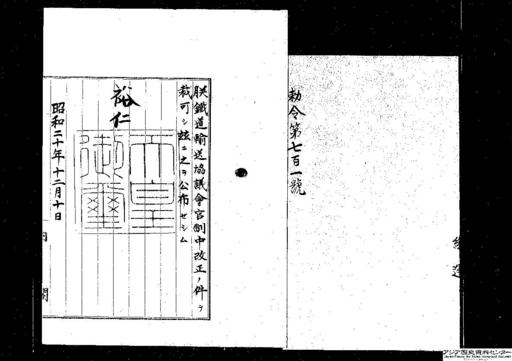 勅令第七百一號
朕鐵道輸送協議會官制中改正ノ件ヲ
裁可シ玆ニ之ヲ公布セシム
裕仁
天皇
御璽
昭和二十年十二月十日
内閣
アジア歴史資料センター